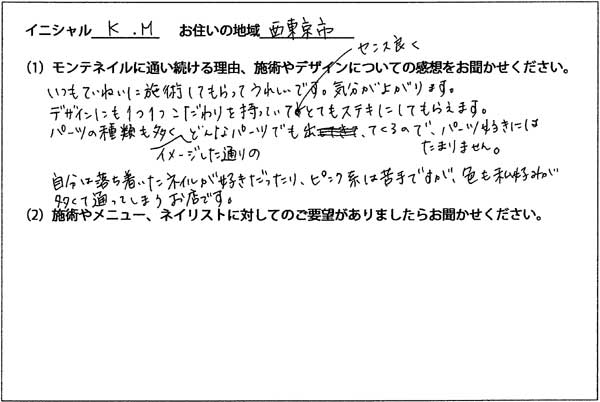 イニシャル K.M お住いの地域 西東京市
(1) モンテネイルに通い続ける理由、施術やデザインについての感想をお聞かせください。
センス良く
いつもていねいに施術してもらってうれしいです。気分が上がります。
デザインにも1つ1つこだわりを持っていてとてもステキにしてもらえます。
パーツの種類も多く、どんなパーツでも出てくるので、パーツ好きには
イメージした通りの
たまりません。
自分は落ち着いたネイルが好きだったり、ピンク系は苦手ですが、色も私好みが
多くて通ってしまうお店です。
(2) 施術やメニュー、ネイリストに対してのご要望がありましたらお聞かせください。